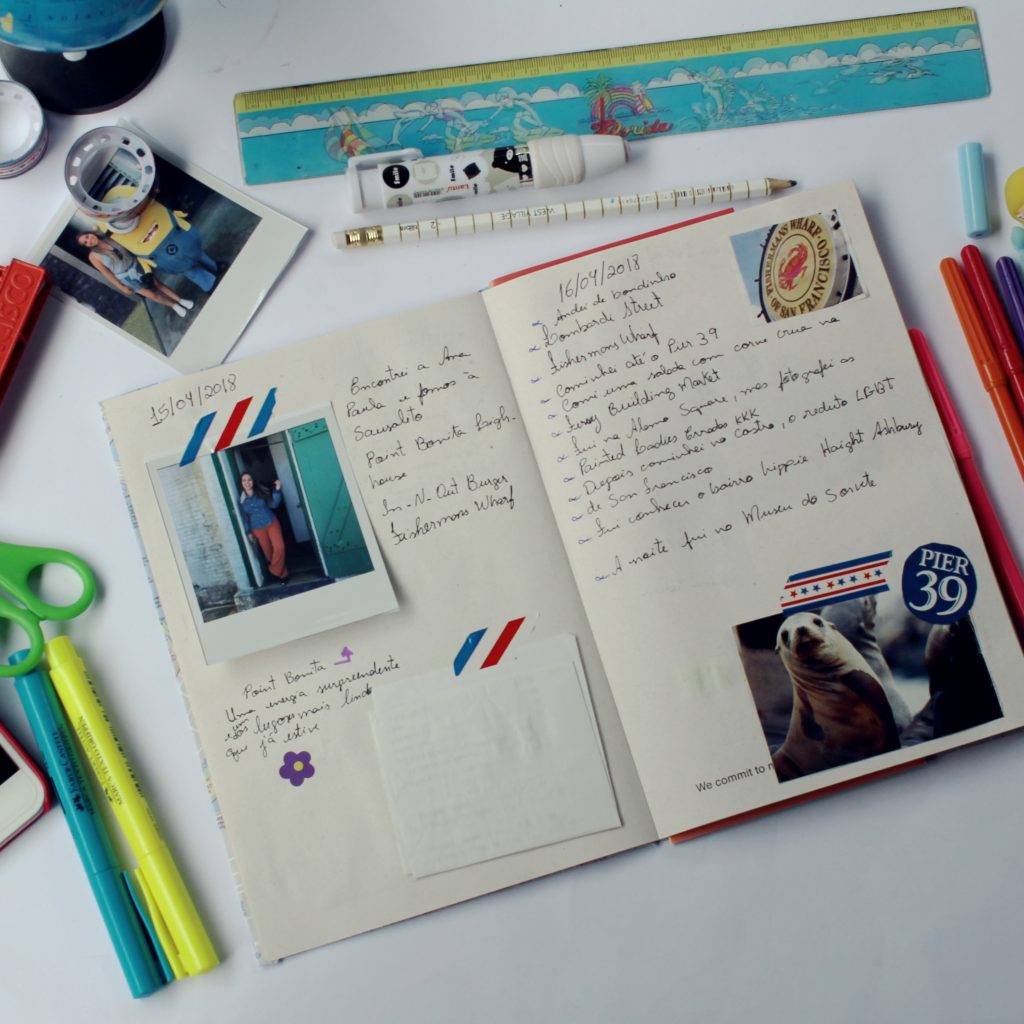 Florida
Smile
WEST VILLAGE
2
15/04/2018
Encontrei a Ana
Paula e fomos à
Sausalito
Point Bonita Ligh-
house
In-N-Out Burger
Fishermons Wharf
Point Bonita
Uma energia surpreendente
lugares mais lindo
que já estive
16/04/2018
Andei de bondinho
Lombardi Street
Fishermons Wharf
Caminhei até o Pier 39
Comi uma salada com carne crua na
Ferry Building Market
Fui na Alamo Square, mas fotografei as
Painted Ladies Erradas KKK
Depois caminhei no Castro, o reduto LGBT
de San Francisco
Fui conhecer o bairro hippie Haight Ashbury
A noite fui no Museu do Sorvete
FISHERMANS WHARF
OF SAN FRANCISCO
PIER
39
We commit to